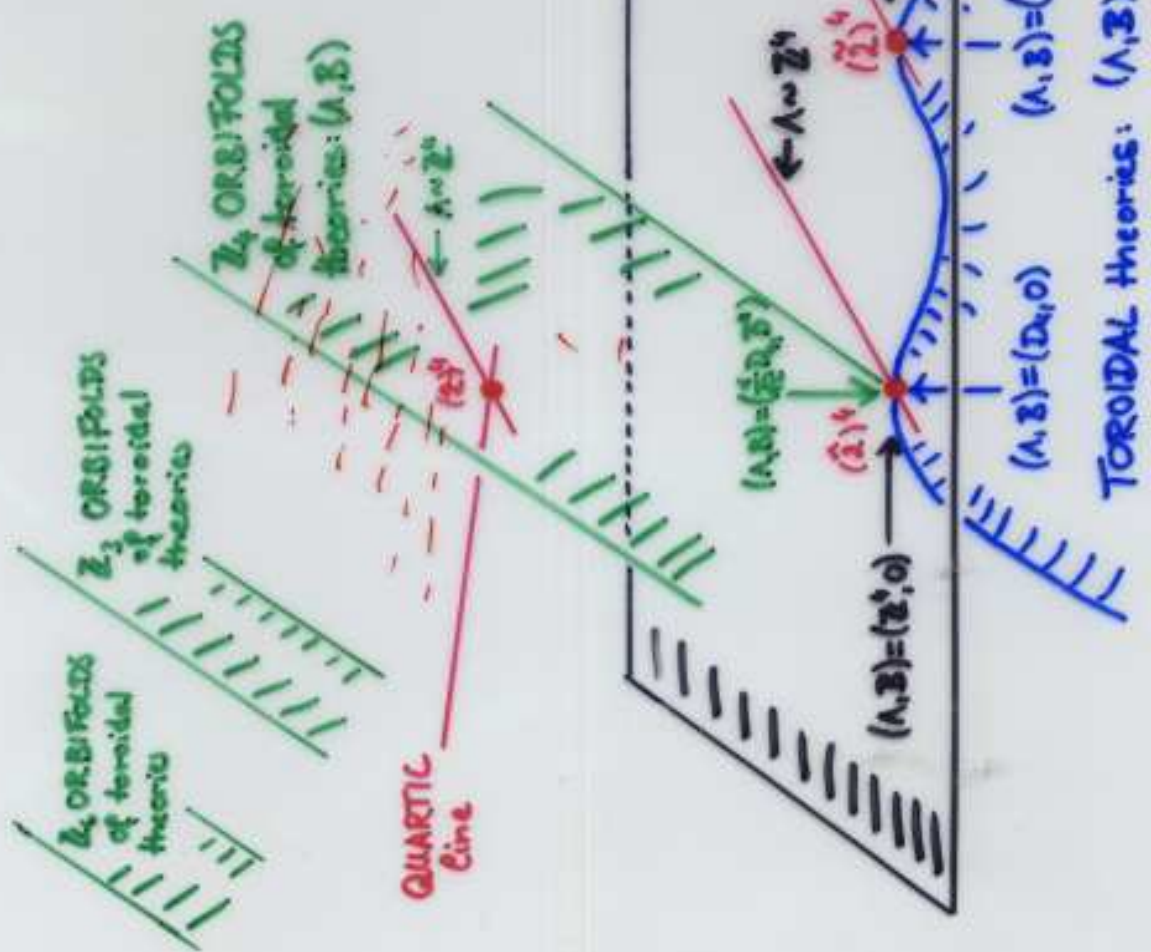 ORBIFOLDS
of toroidal
theories
ℤ₃ ORBIFOLDS
of toroidal
theories
ℤ₄ ORBIFOLDS
of toroidal
theories: (Λ,B)
← Λ~ℤ⁴
QUARTIC
line
← Λ~ℤ⁴
(Λ,B)=(ℤ⁴,0)
(Λ,B)=(D₄,0)
(Λ,B)=(
TOROIDAL theories: (Λ,B)